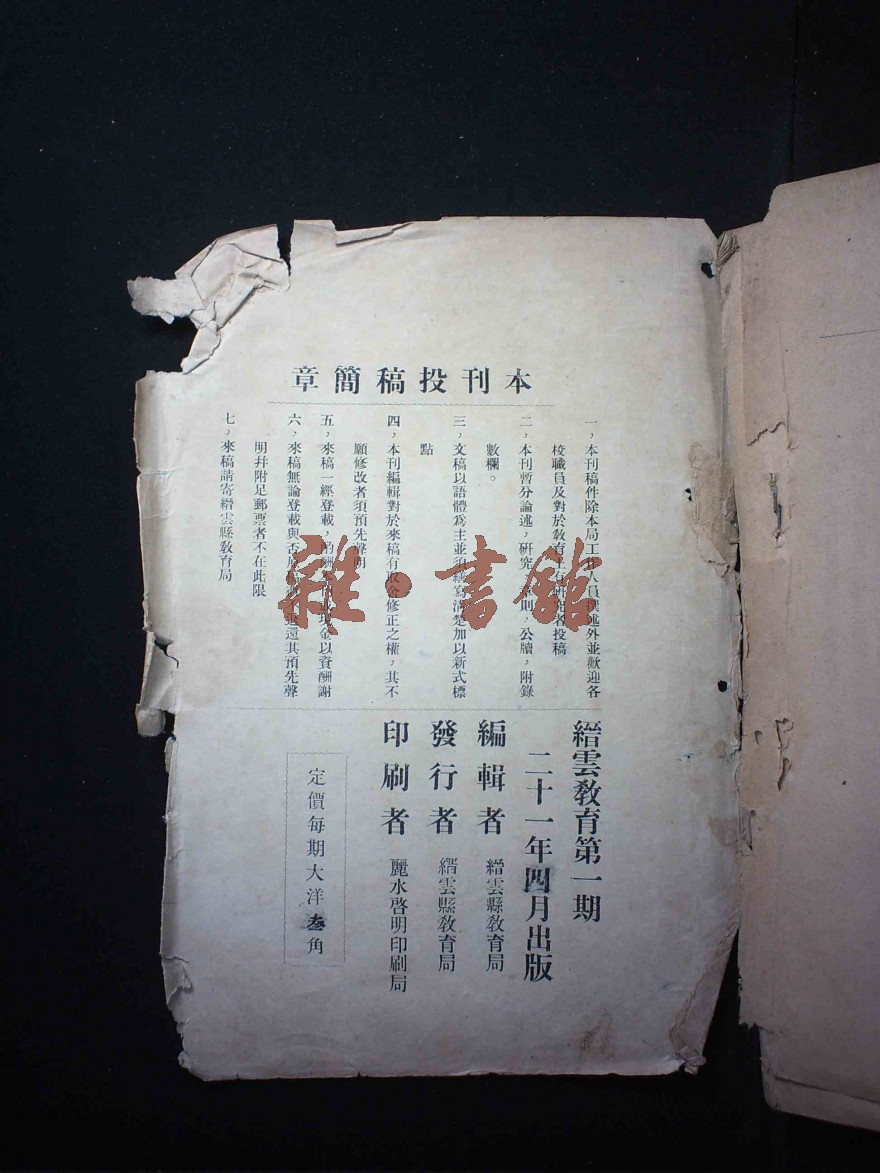 本刊投稿簡章
一，本刊稿件除本局工作人員撰述外並歡迎各
校職員及對於教育上有研究者投稿
二，本刊暫分論述，研究，章則，公牘，附錄
數欄。
三，文稿以語體爲主並須繕寫清楚加以新式標
點
四，本刊編輯對於來稿有取舍修正之權，其不
願修改者須預先聲明
五，來稿一經登載，現金以資酬謝
六，來稿無論登載與否還其預先聲
明幷附足郵票者不在此限
七，來稿請寄縉雲縣教育局
縉雲教育第一期
二十一年四月出版
編輯者 縉雲縣教育局
發行者 縉雲縣教育局
印刷者 麗水啓明印刷局
定價每期大洋叁角
雜·書館